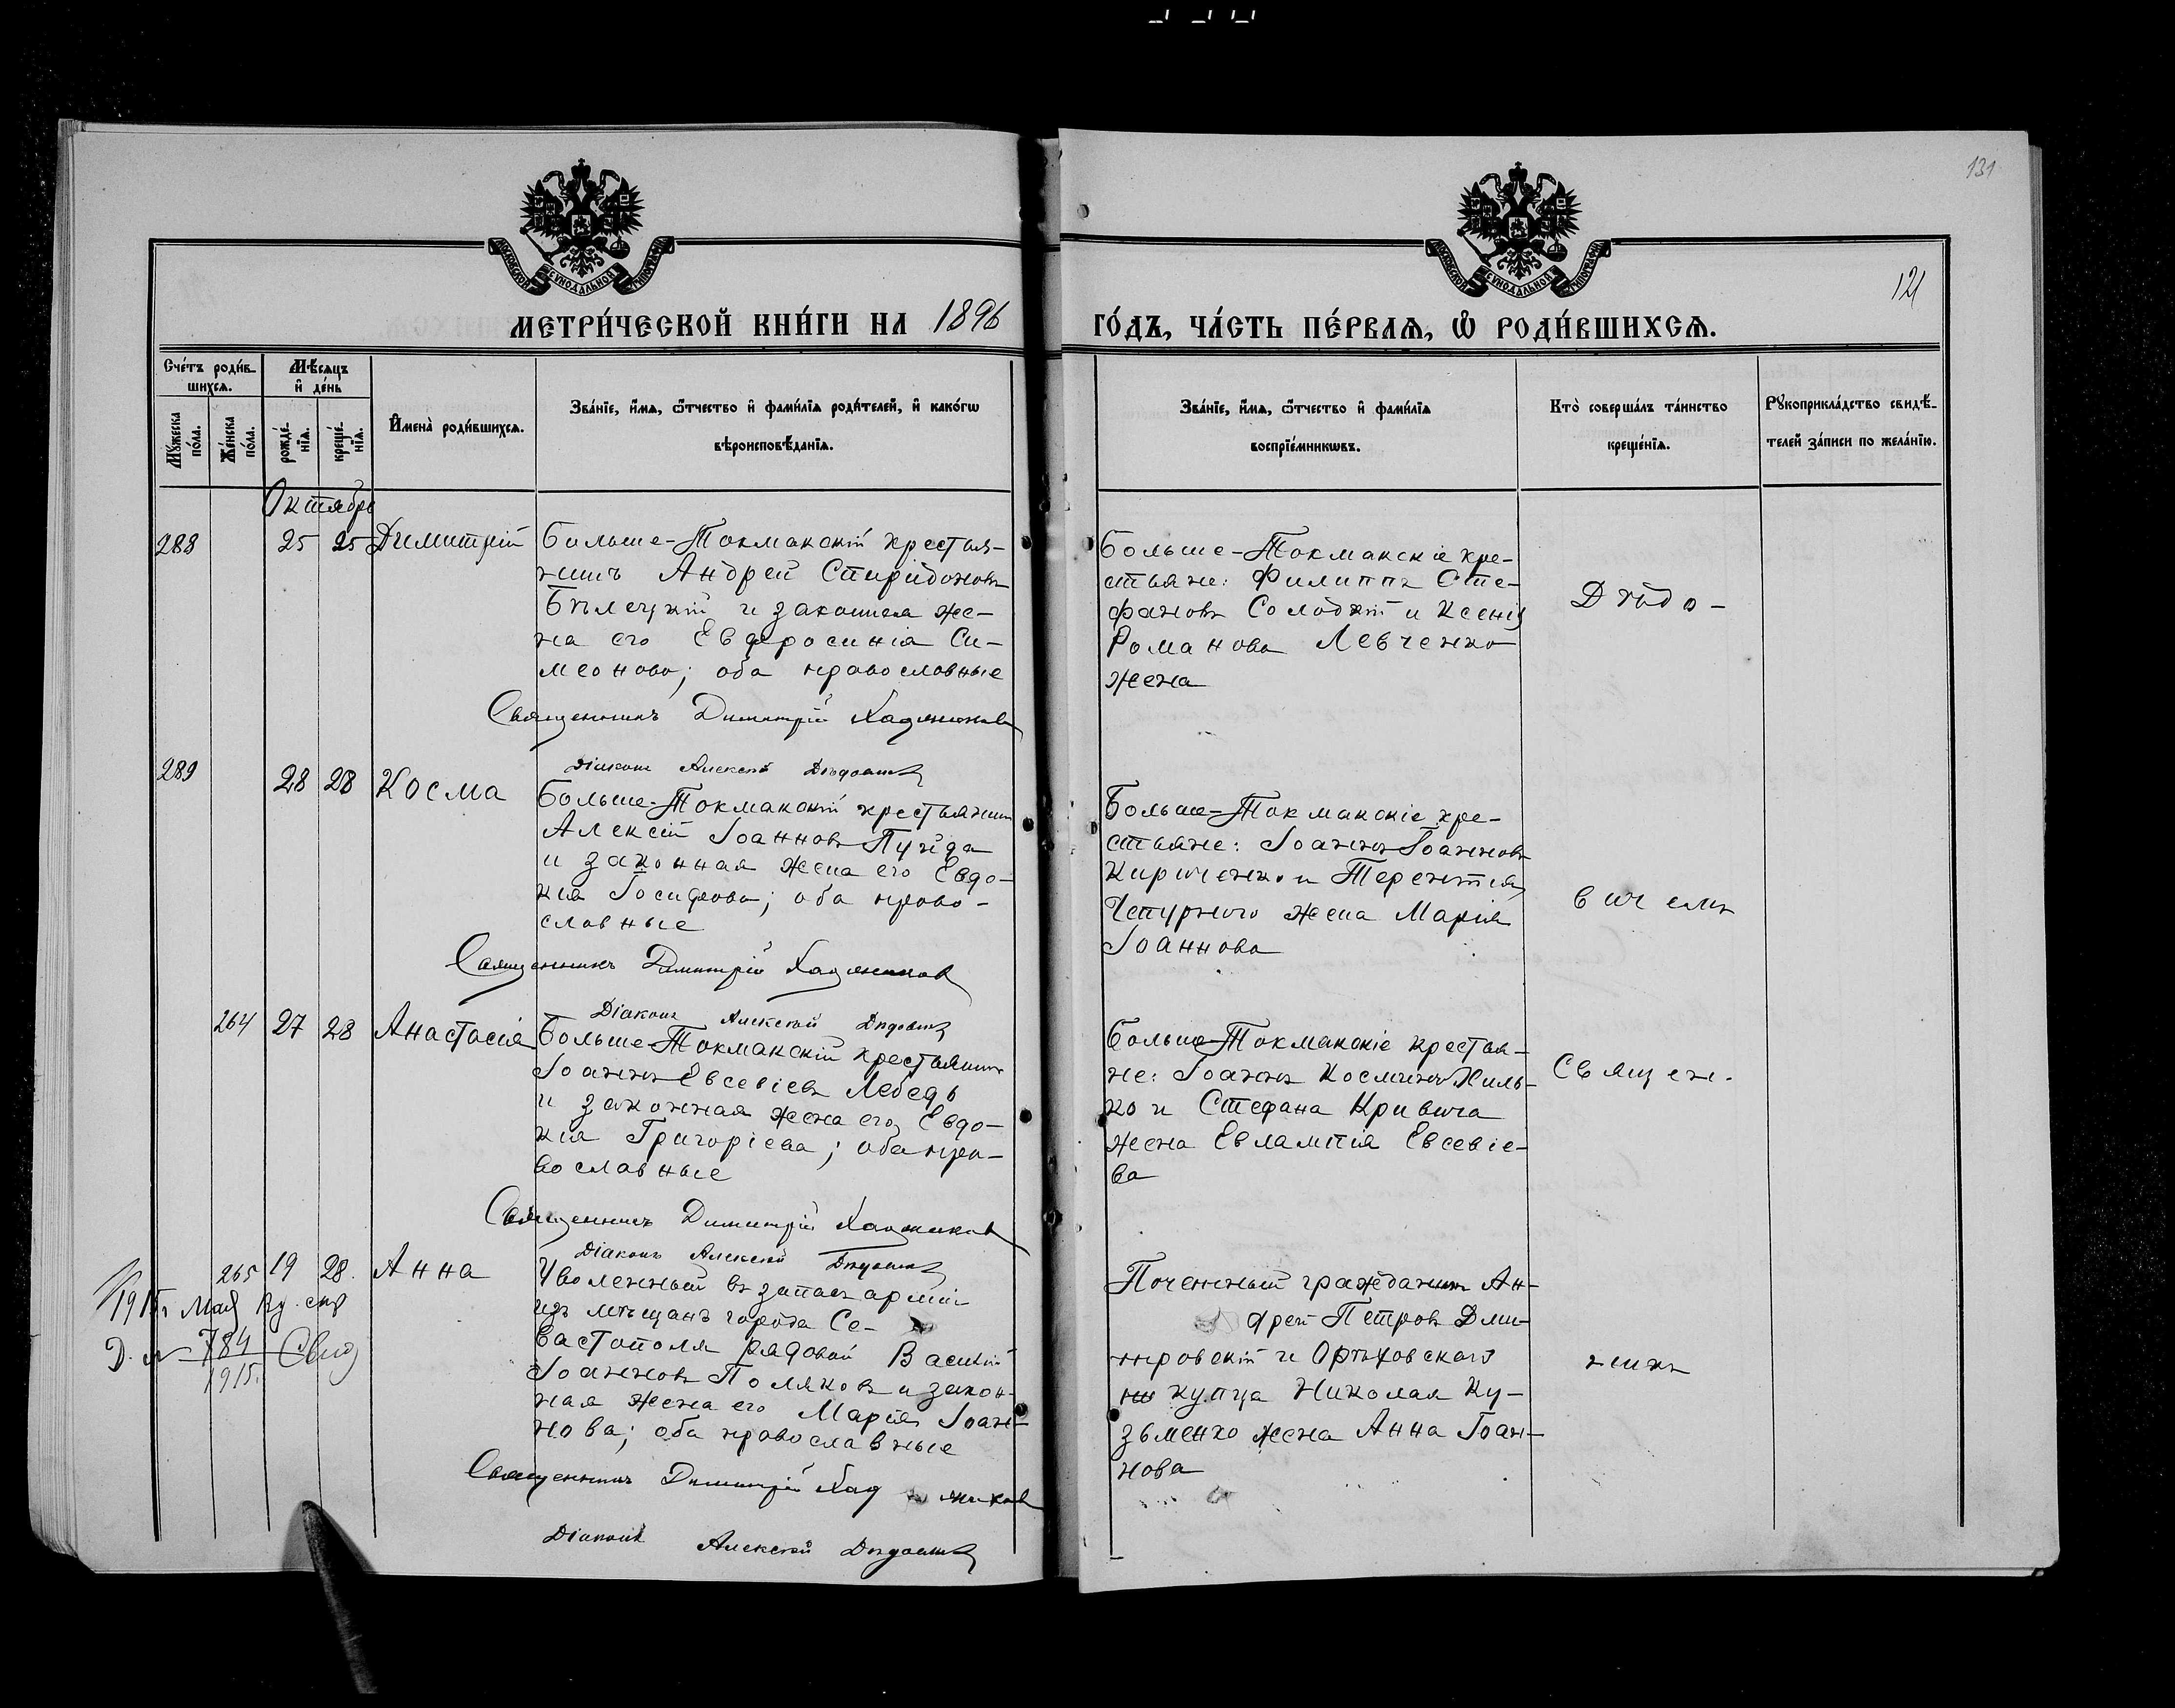 131
121
МОСКОВСКОЙ СѴНОДАЛЬНОЙ ТИПОГРАФІИ
МОСКОВСКОЙ СѴНОДАЛЬНОЙ ТИПОГРАФІИ
МЕТРИ́ЧЕСКОЙ КНИ́ГИ НА 1896 ГО́ДЪ, ЧА́СТЬ ПЕ́РВАѦ, Ѽ РОДИ́ВШИХСѦ.
Сче́тъ роди́в-
шихсѧ.
Мꙋ́жеска
по́ла.
Же́нска
по́ла.
Мѣ́сѧцъ
и҆ де́нь
рожде́-
нїѧ.
креще́-
нїѧ.
И҆мена̀ роди́вшихсѧ.
Зва́нїе, и҆́мѧ, ѻ҆́тчество и҆ фами́лїѧ роди́телей, и҆ како́гѡ
вѣроисповѣ́данїѧ.
Зва́нїе, и҆́мѧ, ѻ҆́тчество и҆ фами́лїѧ
воспрїе́мникѡвъ.
Кто̀ соверша́лъ та́инство
креще́нїѧ.
Рꙋкоприкла́дство свидѣ́-
телей за́писи по жела́нїю.
Октябрь
288 25 25 Димитрій
Больше-Токмакскій крестья-
нинъ Андрей Спиридоновъ
Бѣлецкій и законная же-
на его Евфросинія Си-
меонова; оба православные
Священникъ Димитрій
Діаконъ Алексѣй
Больше-Токмакскіе кре-
стьяне: Филиппъ Сте-
фановъ Солодкій и Ксенія
Романова Левченко
жена
289 28 28 Косма
Больше-Токмакскій крестьянинъ
Алексій Іоанновъ
и законная жена его Евдо-
кія Іосифова; оба право-
славные
Священникъ Димитрій
Діаконъ Алексѣй
Больше-Токмакскіе кре-
стьяне: Іоаннъ Іоанновъ
Кириченко и Терентія
Чепурного жена Марія
Іоаннова
264 27 28 Анастасія
Больше-Токмакскій крестьянинъ
Іоаннъ Евсевіевъ Лебедь
и законная жена его Евдо-
кія Григоріева; оба пра-
вославные
Священникъ Димитрій
Діаконъ Алексѣй
Больше-Токмакскіе крестья-
не: Іоаннъ Косминъ Хиль-
ко и Стефана Кривича
жена Евлампія Евсевіе-
ва
Священ-
265 19 28. Анна
Уволенный въ запасъ арміи
изъ мѣщанъ города Се-
вастополя рядовой Василій
Іоанновъ Поляковъ и закон-
ная жена его Марія Іоан-
нова; оба православные
Священникъ Димитрій
Діаконъ Алексѣй
Почетный гражданинъ Ан-
дрей Петровъ Дми-
тровскій и Орѣховскаго
купца Николая Ку-
зьменко жена Анна Іоан-
нова
никъ
1915 г. Мая
Д. № 784
1915. Свид